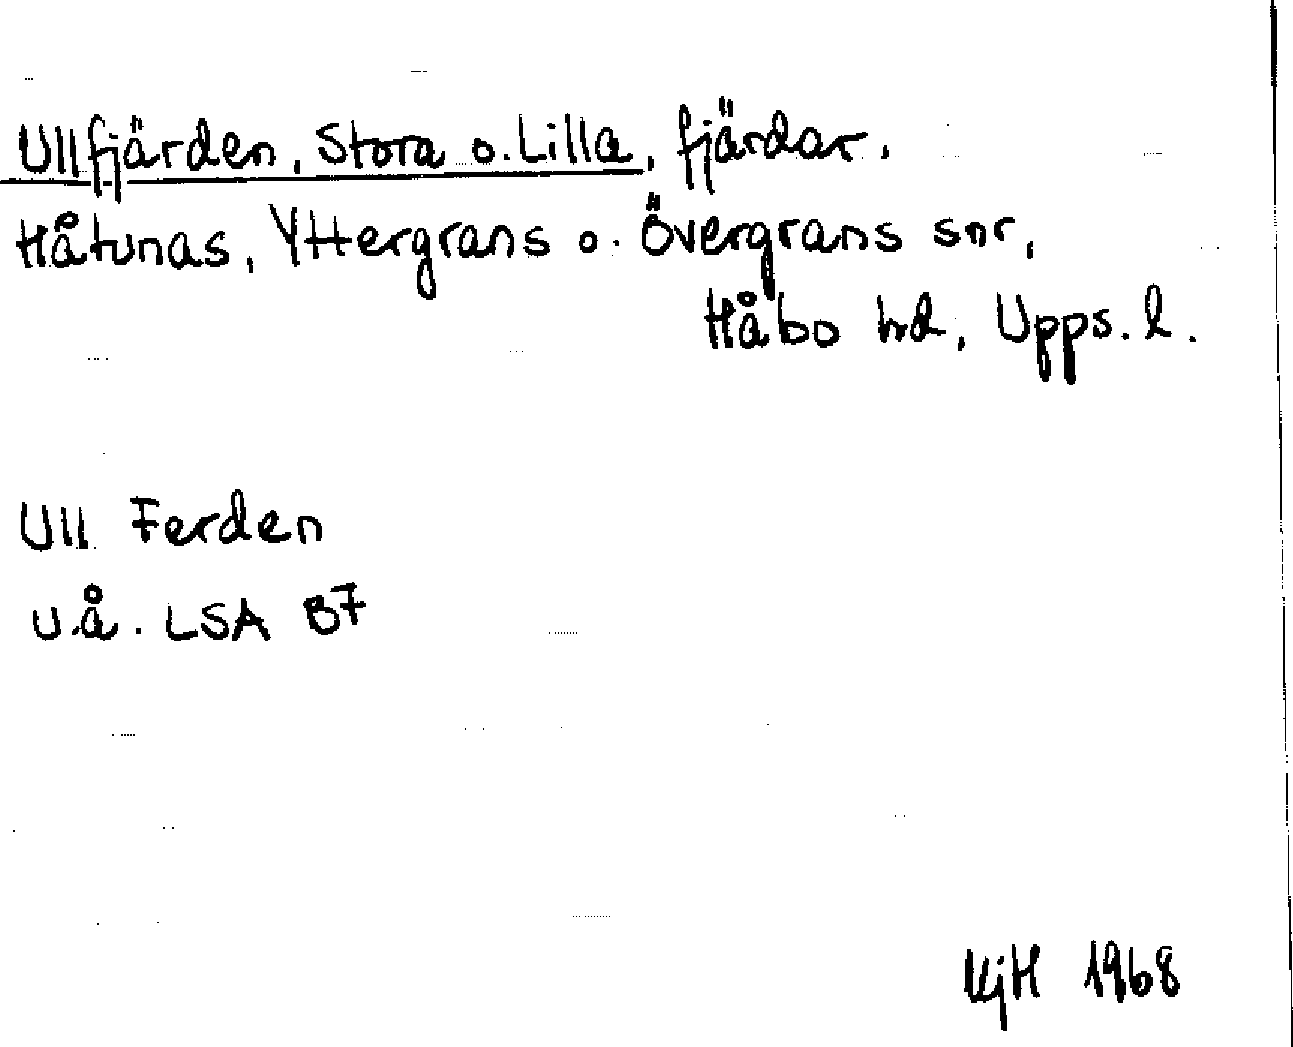 Ullfjärden, Stora o. Lilla, fjärdar.
Håtunas, Yttergrans o. Övergrans snr,
Håbo hd, Upps. l.
Ull Ferden
u.å. LSA B7
KjH 1968